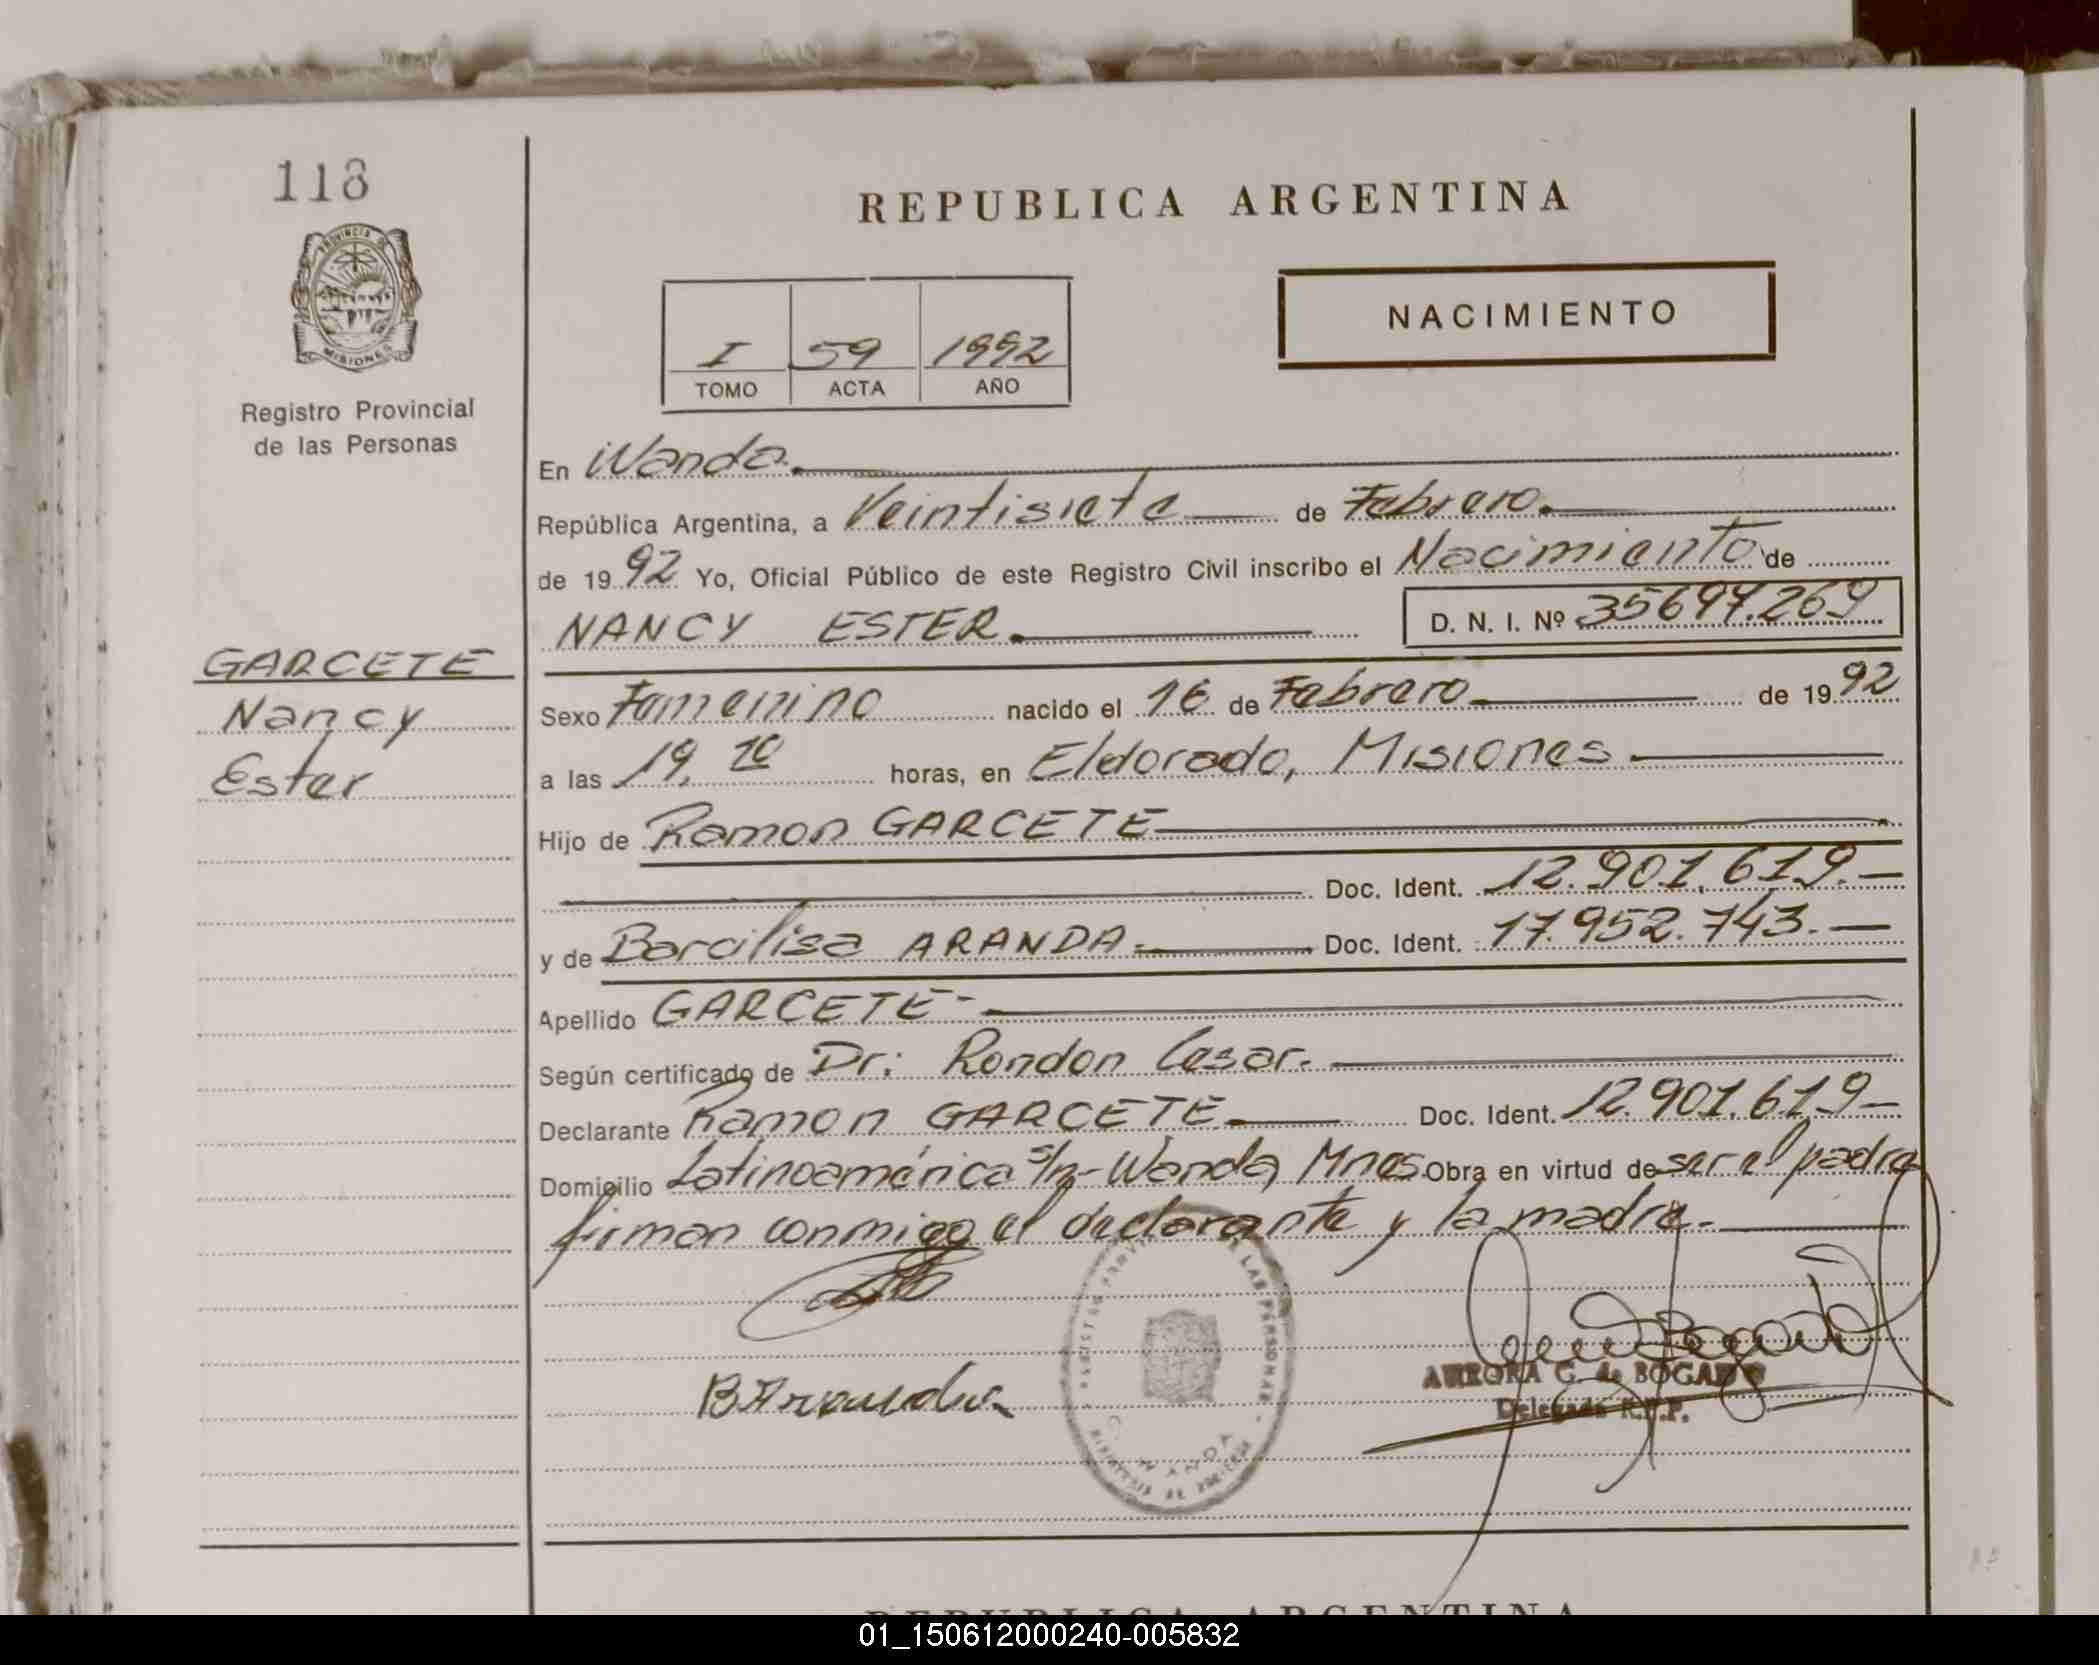 118
REPUBLICA ARGENTINA
PROVINCIA DE
MISIONES
NACIMIENTO
I 59 1992
TOMO ACTA AÑO
Registro Provincial
de las Personas
En Wanda.
República Argentina, a Veintisiete de Febrero.
de 1992 Yo, Oficial Público de este Registro Civil inscribo el Nacimiento de
NANCY ESTER. D. N. I. Nº 35697.269
GARCETE
Nancy
Ester
Sexo Femenino nacido el 16 de Febrero de 1992
a las 19,10 horas, en Eldorado, Misiones
Hijo de Ramon GARCETE
Doc. Ident. 12.901.619.-
y de Barcilisa ARANDA.- Doc. Ident. 17.952.743.-
Apellido GARCETE-
Según certificado de Dr: Rondon Cesar.
Declarante Ramon GARCETE. Doc. Ident. 12.901.619-
Domicilio Latinoamérica s/n-Wanda, Mnes. Obra en virtud de ser el padre
firman conmigo el declarante y la madre.-
LAS PERSONAS
WANDA
BAranda
AURORA G. de BOGADO
Delegada R.P.P.
REPUBLICA ARGENTINA
01_150612000240-005832